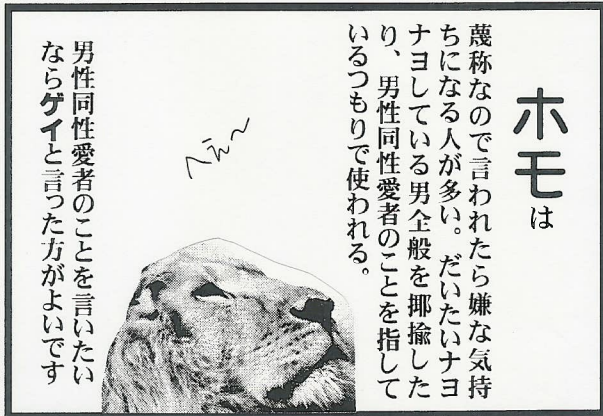 ホモは
蔑称なので言われたら嫌な気持
ちになる人が多い。だいたいナヨ
ナヨしている男全般を揶揄した
り、男性同性愛者のことを指して
いるつもりで使われる。
へぇ〜
男性同性愛者のことを言いたい
ならゲイと言った方がよいです